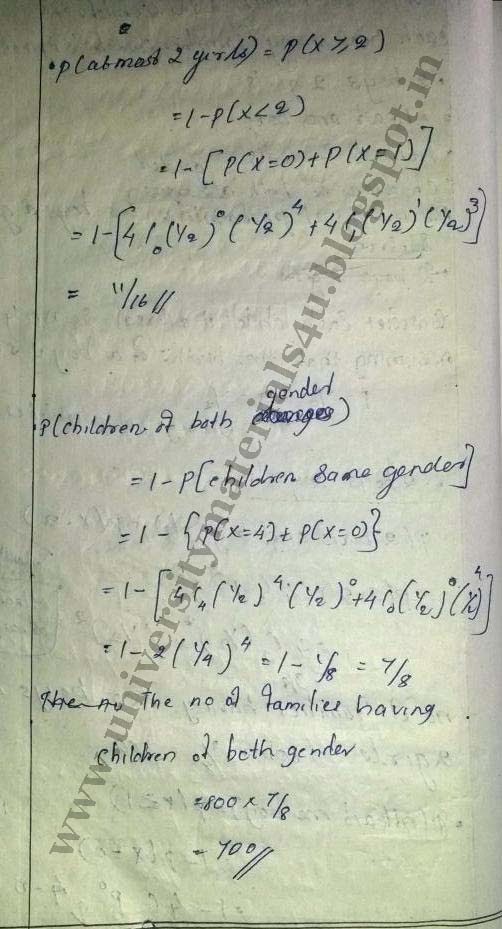 • P(atmost 2 girls) = P(X ≥ 2)
= 1 - P(X < 2)
= 1 - [P(X=0) + P(X=1)]
= 1 - [4C₀ (1/2)⁰ (1/2)⁴ + 4C₁ (1/2)¹ (1/2)³]
= 11/16 //
gender
• P(children of both )
= 1 - P[children same gender]
= 1 - {P(X=4) + P(X=0)}
= 1 - [4C₄ (1/2)⁴ (1/2)⁰ + 4C₀ (1/2)⁰ (1/2)⁴]
= 1 - 2(1/4)⁴ = 1 - 1/8 = 7/8
The no of families having
children of both gender
= 800 × 7/8
= 700 //
www.universitymaterials4u.blogspot.in